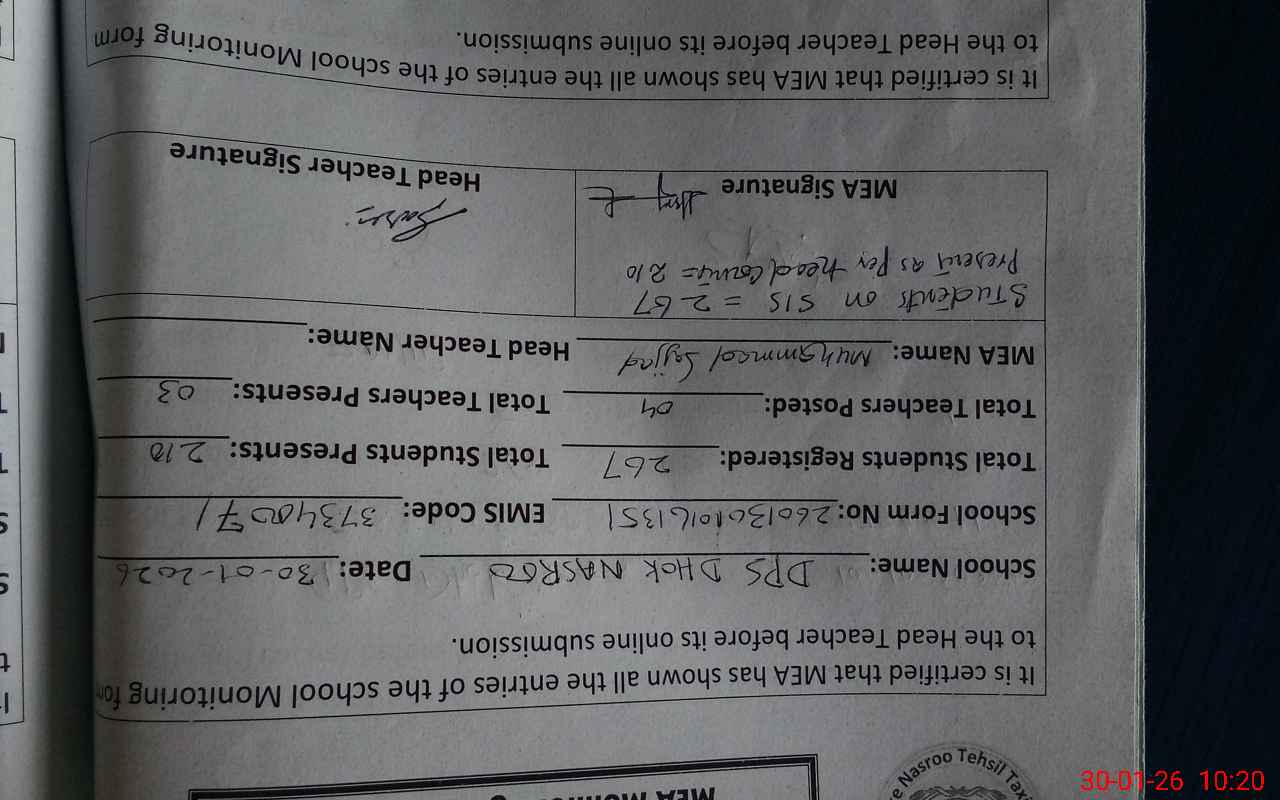 Nasroo Tehsil Taxi
It is certified that MEA has shown all the entries of the school Monitoring for
to the Head Teacher before its online submission.
School Name: DPS DHOK NASROO Date: 30-01-2026
School Form No: 26013010161351 EMIS Code: 37340071
Total Students Registered: 267 Total Students Presents: 210
Total Teachers Posted: 04 Total Teachers Presents: 03
MEA Name: Muhammad Sajjad Head Teacher Name:
Students on SIS = 267
Present as per head count = 210
MEA Signature Head Teacher Signature
It is certified that MEA has shown all the entries of the school Monitoring form
to the Head Teacher before its online submission.
30-01-26 10:20